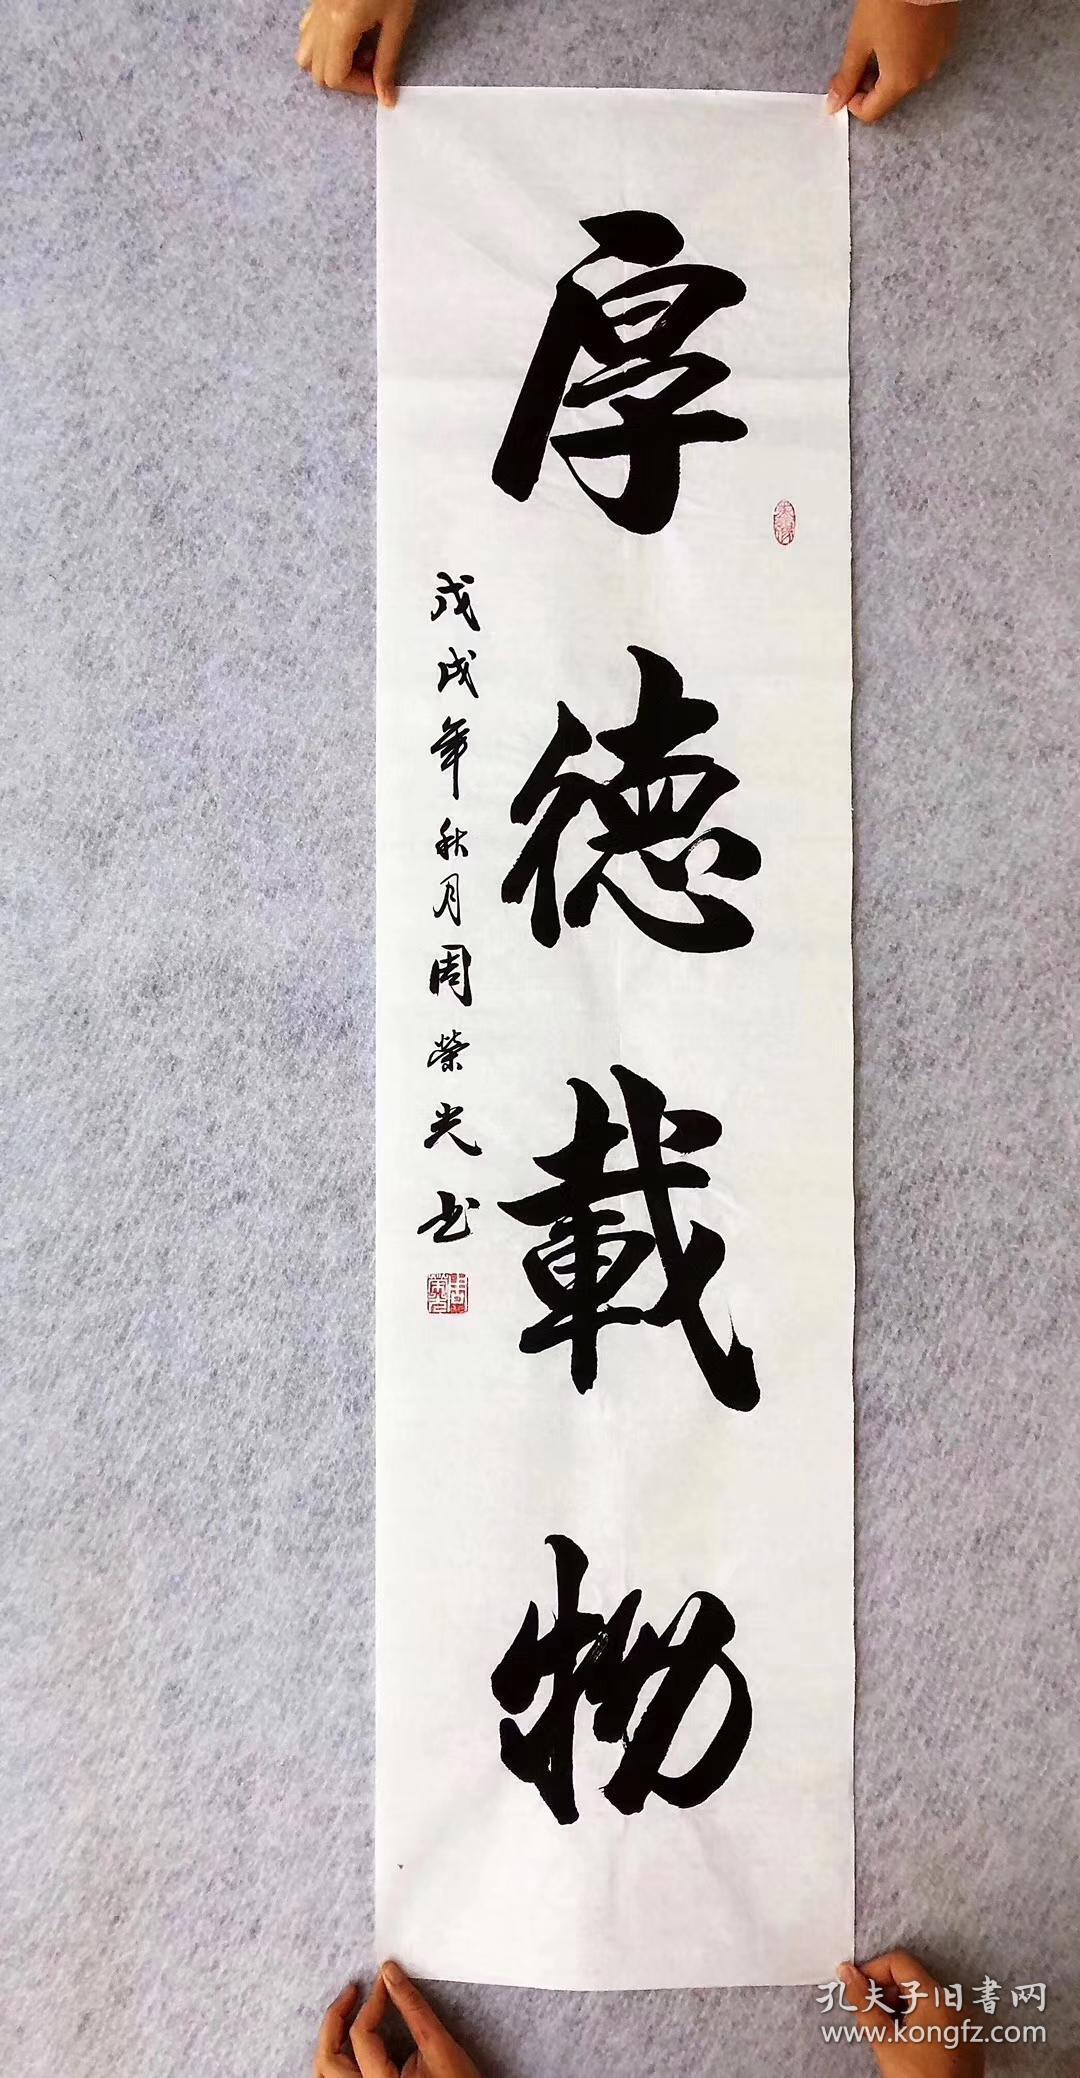 厚德載物
戊戌年秋月周榮光书
孔夫子旧書网
www.kongfz.com